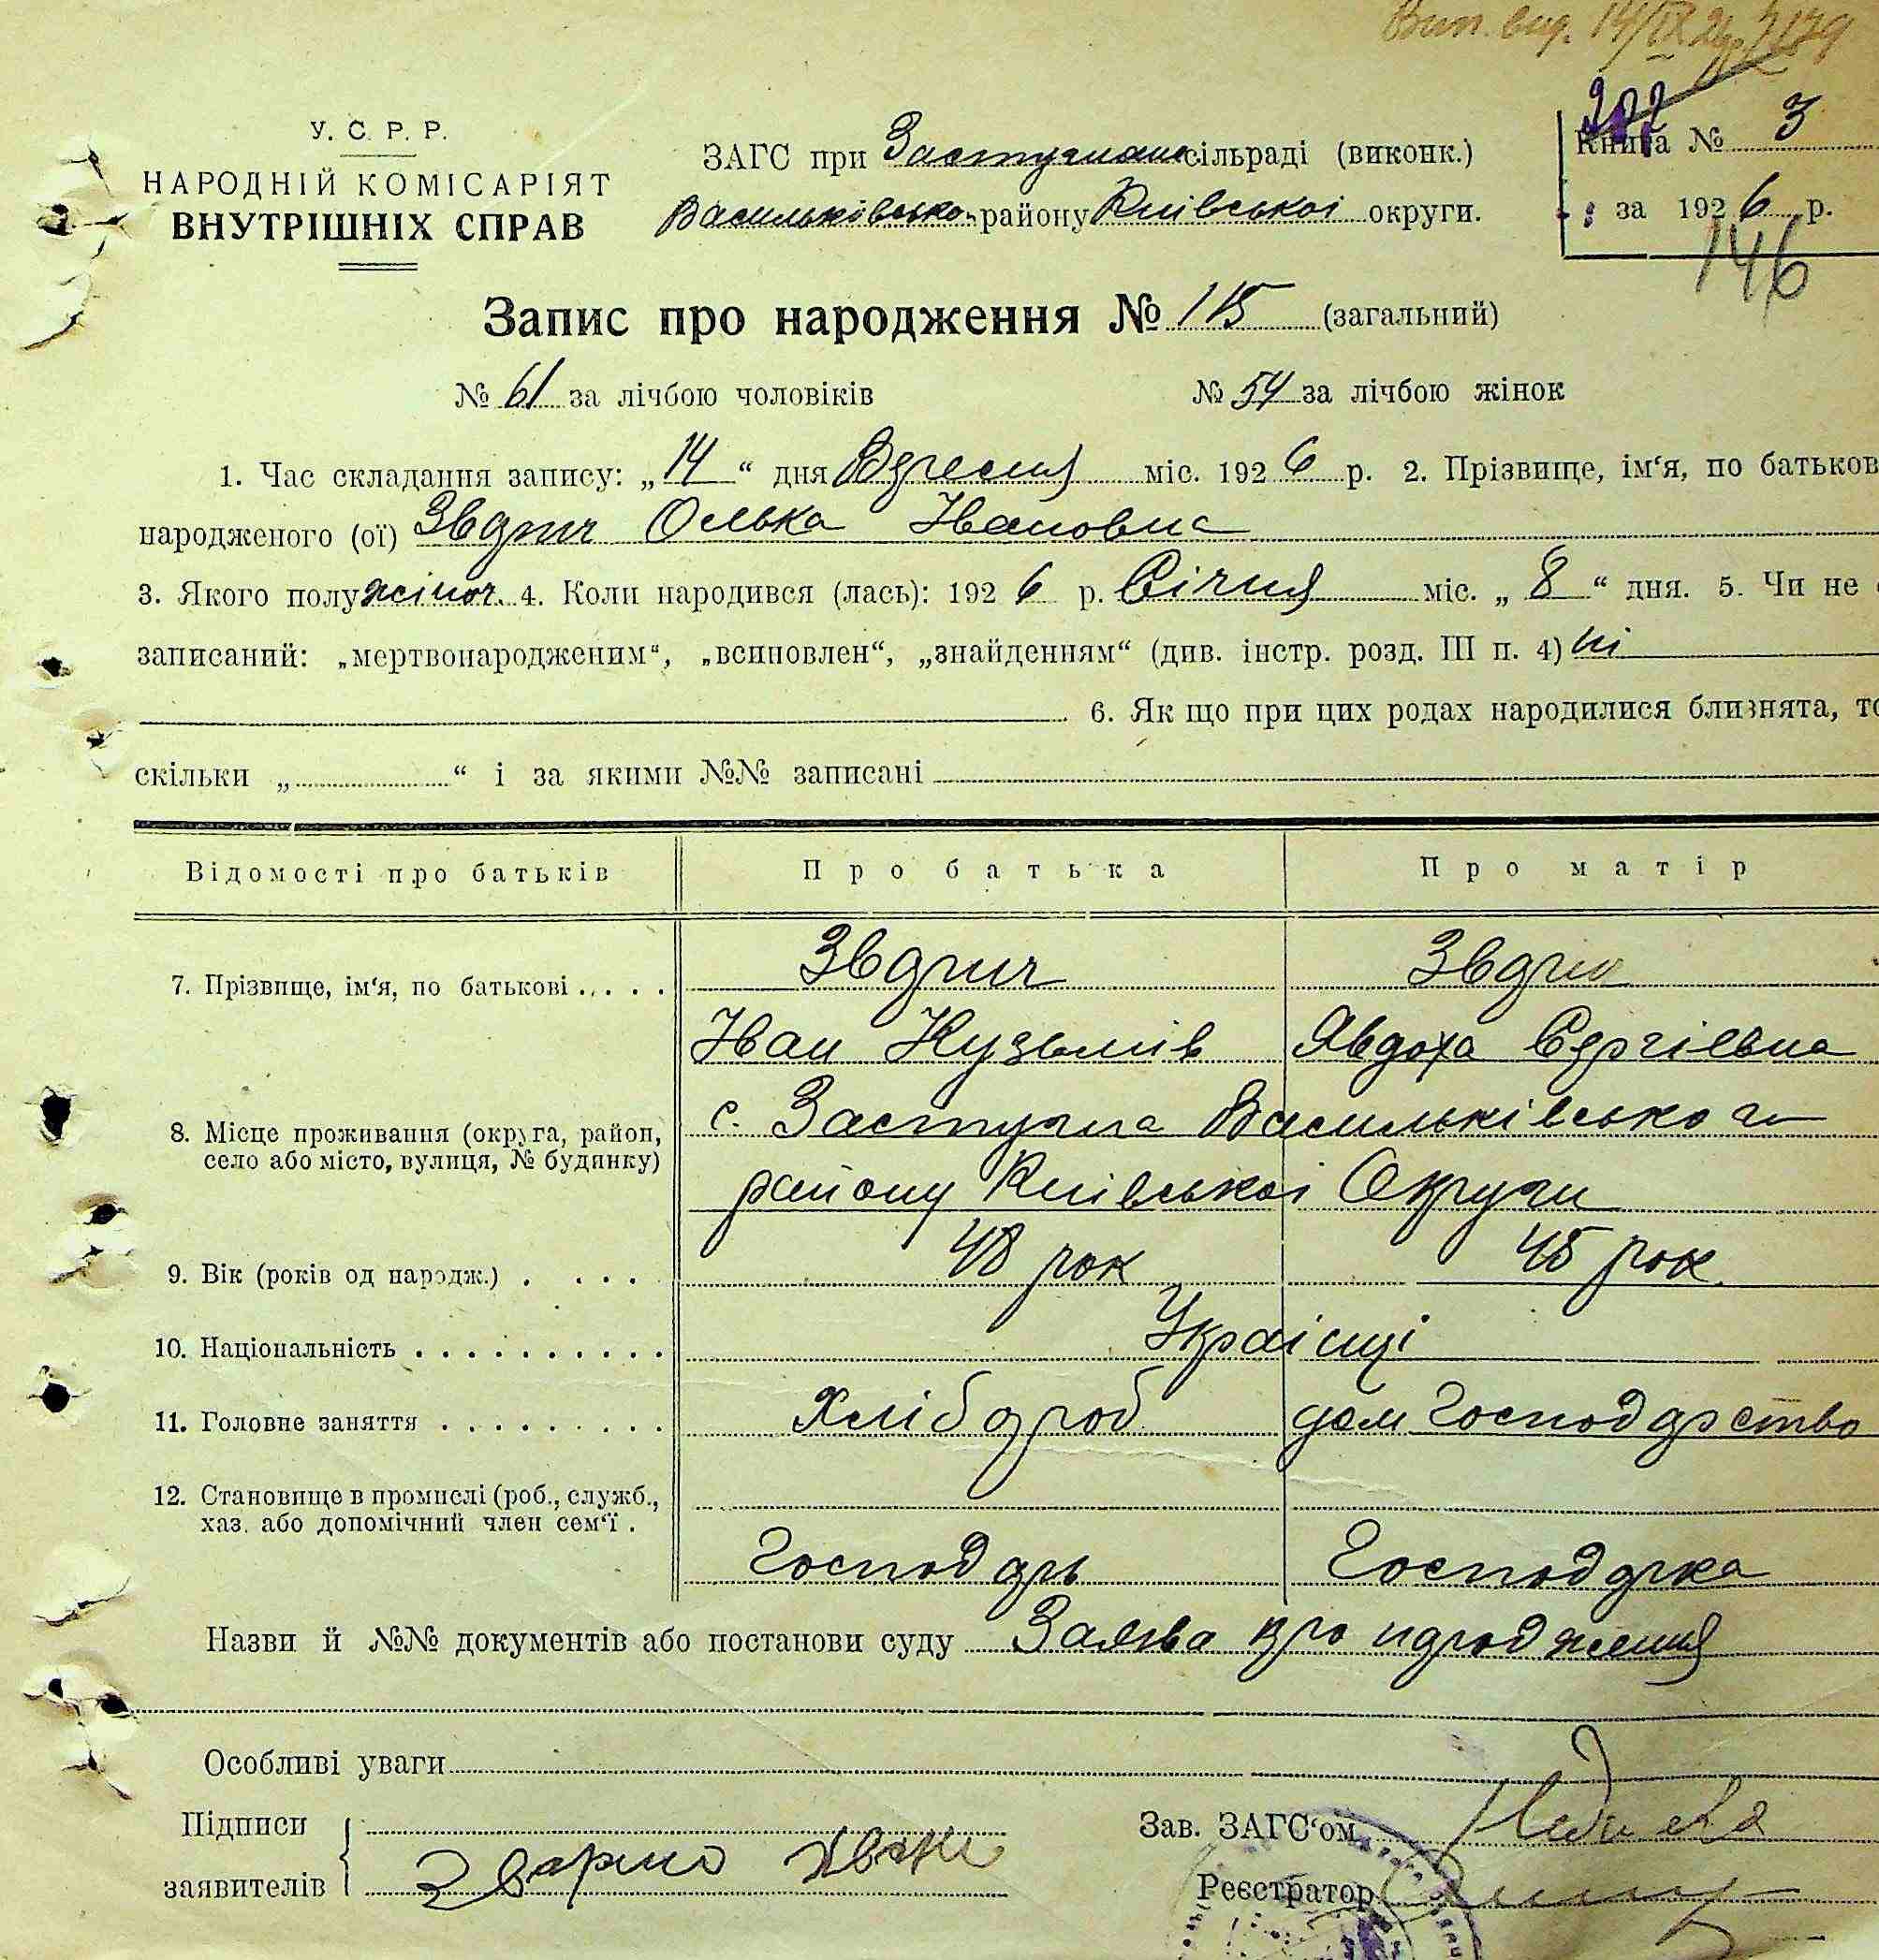 Вип. вид. 14/IX
У. С. Р. Р.
НАРОДНІЙ КОМІСАРІЯТ
ВНУТРІШНІХ СПРАВ
ЗАГС при сільраді (виконк.)
Васильківсько району Київської округи.
Книга № 3
за 1926 р.
146
Запис про народження № 115 (загальний)
№ 61 за лічбою чоловіків № 54 за лічбою жінок
1. Час складання запису: „14“ дня Вересня міс. 1926 р. 2. Прізвище, ім‘я, по батьков
народженого (ої) Олька Івановна
3. Якого полу жіноч. 4. Коли народився (лась): 1926 р. Січня міс. „8“ дня. 5. Чи не
записаний: „мертвонародженим“, „всиновлен“, „знайденням“ (див. інстр. розд. III п. 4) ні
6. Як що при цих родах народилися близнята, то
скільки „ “ і за якими №№ записані
Відомості про батьків Про батька Про матір
7. Прізвище, ім‘я, по батькові
Іван Кузьмів Явдоха Сергієвна
8. Місце проживання (округа, район, с. Застугна Васильківського
село або місто, вулиця, № будинку) району Київської Округи
9. Вік (років од народж.) 48 рок 45 рок
10. Національність Українці
11. Головне заняття Хлібороб дом господарство
12. Становище в промислі (роб., служб.,
хаз. або допомічний член сем‘ї. Господарь Господарка
Назви й №№ документів або постанови суду Заява про народження
Особливі уваги
Підписи Зав. ЗАГС‘ом
заявителів Реєстратор